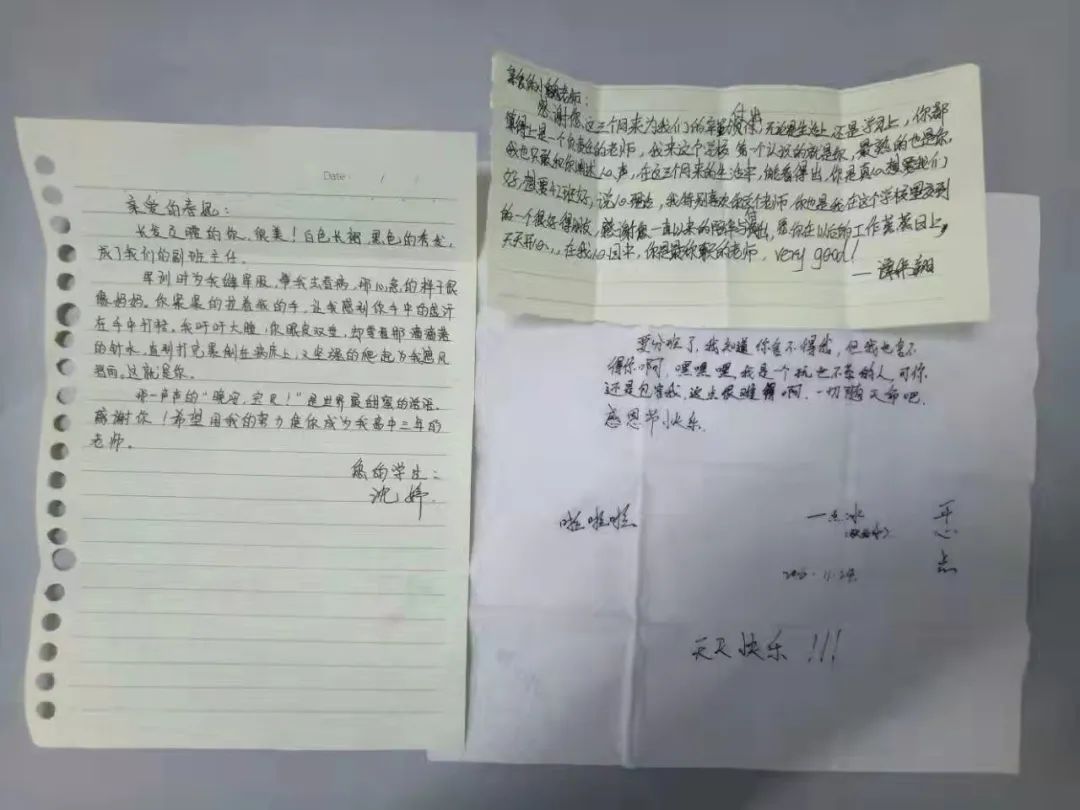 Date / /
亲爱的春妮:
长发及腰的你,很美!白色长裙 黑色的秀发,
成了我们的副班主任。
军训时为我缝军服,带我去看病,那心急的样子很
像妈妈。你紧紧的拉着我的手,让我感到你手中的虚汗
在手中打转。我吓吓大睡,你眼皮双垂,却望着那滴滴落
的针水,直到打完累倒在病床上,又坚强的爬起为我遮风
挡雨。这就是你。
那一声声的"晚安,宝贝!"是世界最甜蜜的话语。
感谢你!希望用我的努力使你成为我高中三年的
老师。
您的学生:
沈婷
亲爱的小老师:
感谢您这三个月来为我们的辛勤付出,无论是生活上还是学习上,你都
算得上是一个负责任的老师,我来这个学校 第一个认识的就是你,最熟的也是你
我也只敢和你阐述心声,在这三个月来的生活中,能看得出,你是真心想要我们
好,想要42班好,说心理话,我特别喜欢你这个老师,你也是我在这个学校里交到
的一个很好得朋友,感谢你一直以来的陪伴与,愿你在以后的工作蒸蒸日上,
天天开心,在我心目中,你是最称职的老师,very good!
——谭年
要分班了,我知道你舍不得我,但我也舍不
得你啊,嘿嘿嘿,我是一个扰也不的人,可你
还是包容我,这点很难得啊,一切随天命吧
感恩节快乐
啦啦啦
一点冰
开心点
11.
天天快乐!!!